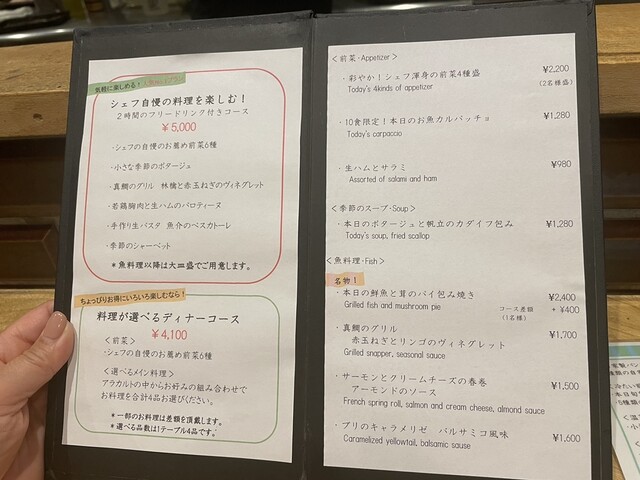 気軽に楽しめる！
シェフ自慢の料理を楽しむ！
２時間のフリードリンク付きコース
￥5,000
・シェフの自慢のお薦め前菜6種
・小さな季節のポタージュ
・真鯛のグリル　林檎と赤玉ねぎのヴィネグレット
・若鶏胸肉と生ハムのバロティーヌ
・手作り生パスタ　魚介のペスカトーレ
・季節のシャーベット
＊魚料理以降は大皿盛でご用意します。
ちょっぴりお得にいろいろ楽しむなら！
料理が選べるディナーコース
￥4,100
＜前菜＞
・シェフの自慢のお薦め前菜6種
＜選べるメイン料理＞
アラカルトの中からお好みの組み合わせで
お料理を合計4品お選びください。
＊一部のお料理は差額を頂戴します。
＊選べる品数は1テーブル4品です。
＜前菜・Appetizer＞
・彩やか！シェフ渾身の前菜4種盛 ¥2,200
Today's 4kinds of appetizer (2名様盛)
・10食限定！本日のお魚カルパッチョ ¥1,280
Today's carpaccio
・生ハムとサラミ ¥980
Assorted of salami and ham
＜季節のスープ・Soup＞
・本日のポタージュと帆立のカダイフ包み ¥1,280
Today's soup, fried scallop
＜魚料理・Fish＞
名物！
・本日の鮮魚と茸のパイ包み焼き ¥2,400
Grilled fish and mushroom pie コース差額 + ¥400
(1名様)
・真鯛のグリル ¥1,700
赤玉ねぎとリンゴのヴィネグレット
Grilled snapper, seasonal sauce
・サーモンとクリームチーズの春巻 ¥1,500
アーモンドのソース
French spring roll, salmon and cream cheese, almond sauce
・ブリのキャラメリゼ　バルサミコ風味 ¥1,600
Caramelized yellowtail, balsamic sause